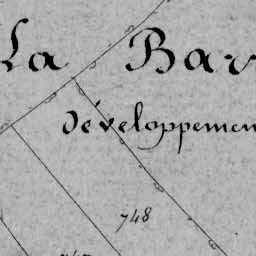 La Bar
développemen
748